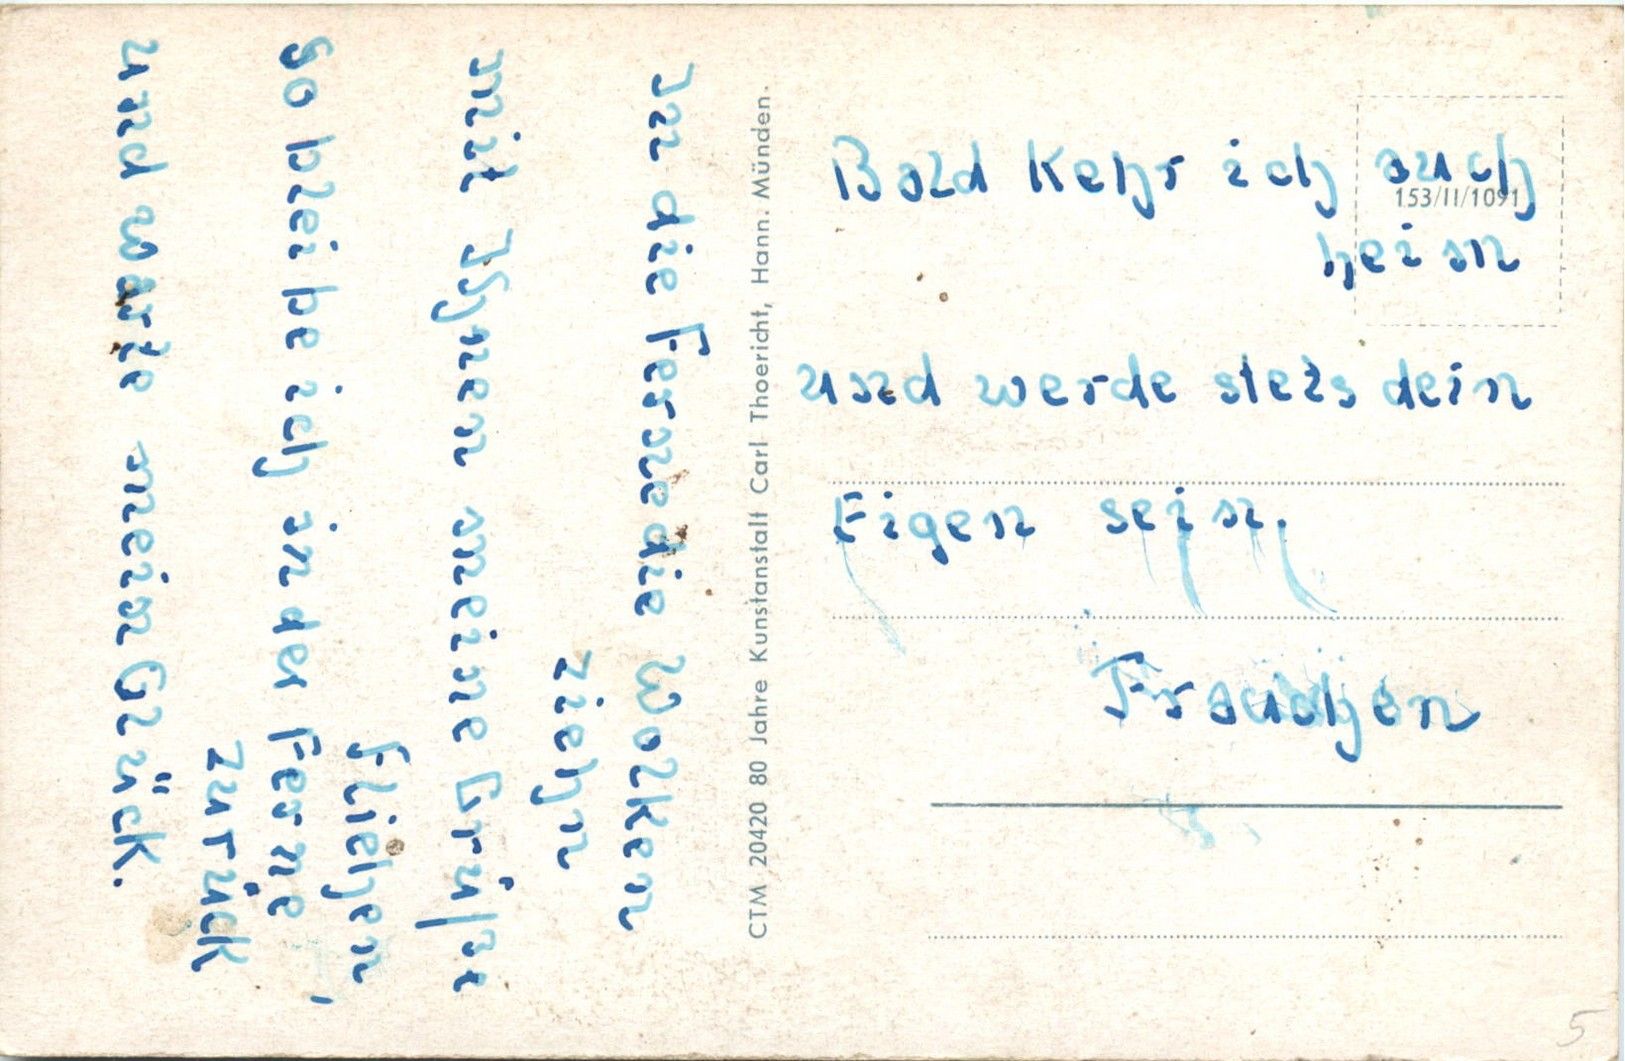 In die Ferne die Wolken
ziehn
mit Ihnen meine Grüße
fliehen,
So bleibe ich in der Ferne
zurück
und warte mein Glück.
CTM 20420 80 Jahre Kunstanstalt Carl Thoericht, Hann. Münden.
153/II/1091
Bald kehr ich auch
heim
und werde stets dein
Eigen sein.
Frauchen
5